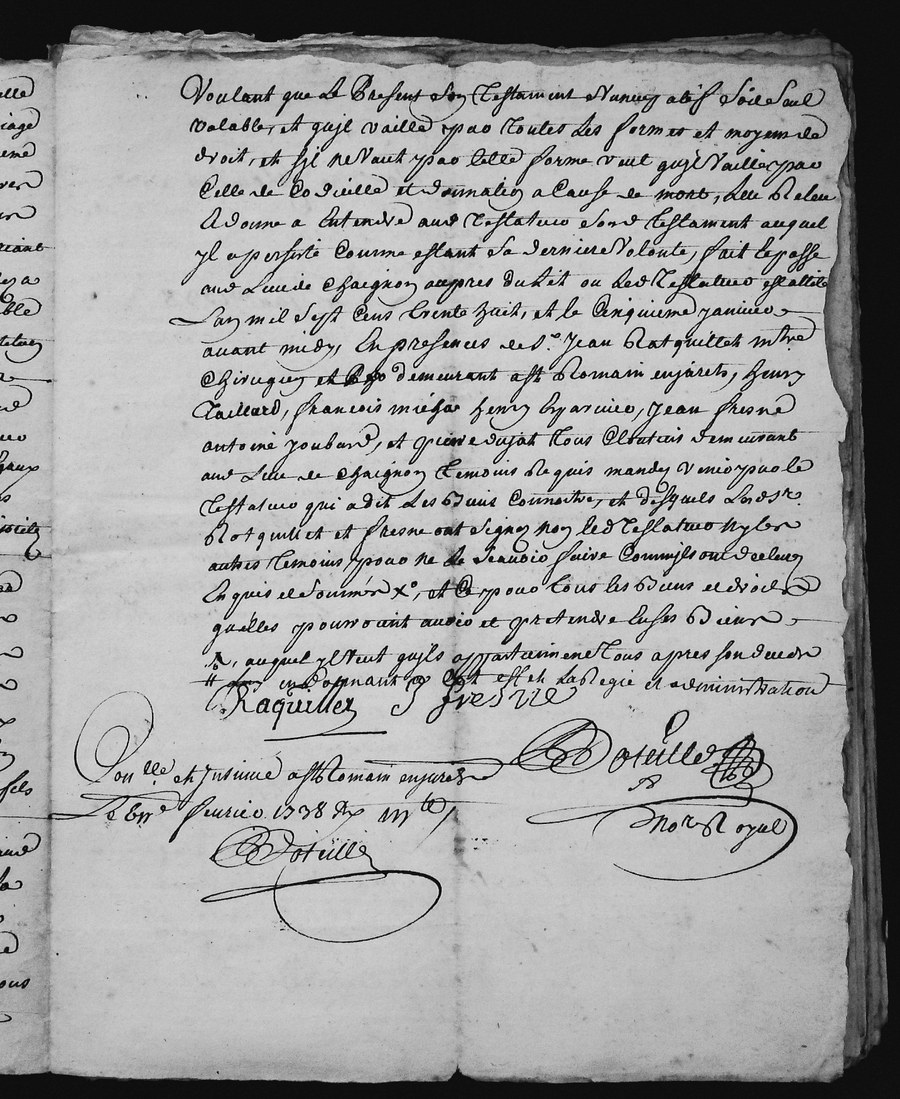 Voulant que Le Present son Testament Nuncupatif Soit Seul
valable, et quyl vaille par toutes Les formes et moyens de
droit, et syl ne Vaut par telle forme veut quyl Vaille par
Celle de Codicille et donnation a Cause de mort, Leu Releu
& donne a Entendre aud Testateur Sond Testament auquel
yl a persisté Comme estant Sa derniere Volonté, fait et passé
aud Lieu de Chaignon aupres du Lit ou Led Testateur est allité
Lan mil Sept Cens trente huit, et le Cinquieme janvier
avant midy, En presences de Sr. Jean Ratquillet mtre
Chirugien et demeurant a St Romain enjarets, henry
Taillard, francois henry Jean fresne
antoine joubard, et pierre dujat tous Cloutiers demeurant
aud Lieu de Chaignon temoins Requis mandes Venir par le
Testateur qui a dit Les Biens Connoitre, et desquels Lesd Sr.
Ratquillet et fresne ont Signe non led Testateur ny les
autres temoins pour ne Le Scavoir faire Comme ils ont declare
Enquis et Sommés X°, et Ce pour tous les Biens et droits
quelles pourroient avoir et pretendre En ses Biens
auquel yl Veut quyls appartiennent tous apres son deces
en Donnant La Regie et administration
Raquillet J fresne
Conlle et Insinué a St Romain enjarets
Le fevrier 1738
Bateille
Bateille
Nore Royal